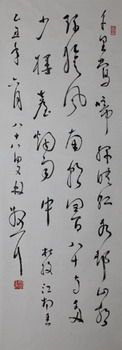 千里鶯啼綠映紅水邨山郭
酒旗風南朝四百八十寺多
少樓臺煙雨中杜牧江南春
乙丑年六月八十八叟